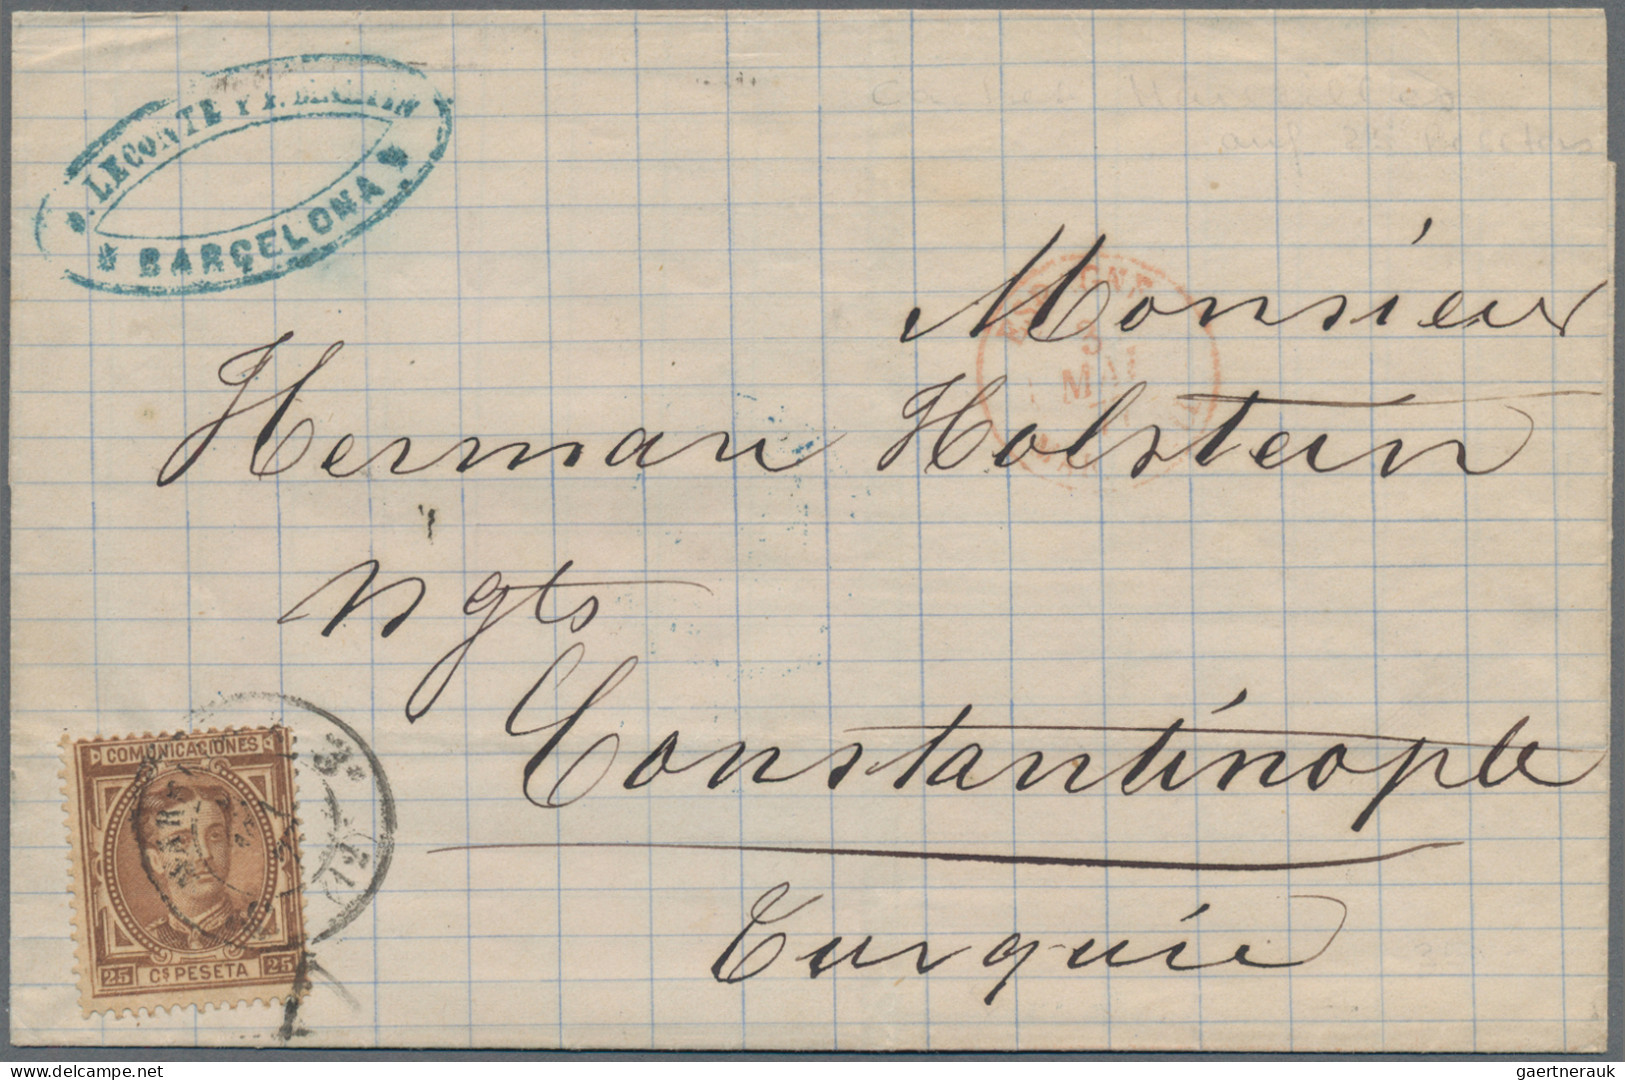 LECONTE Y
BARCELONA
ESPAGNE
3
MAI
Monsieur
Herman Holstein
Ngts
Constantinople
Turquie
COMUNICACIONES
25 Cs PESETA 25
gaertnerauk